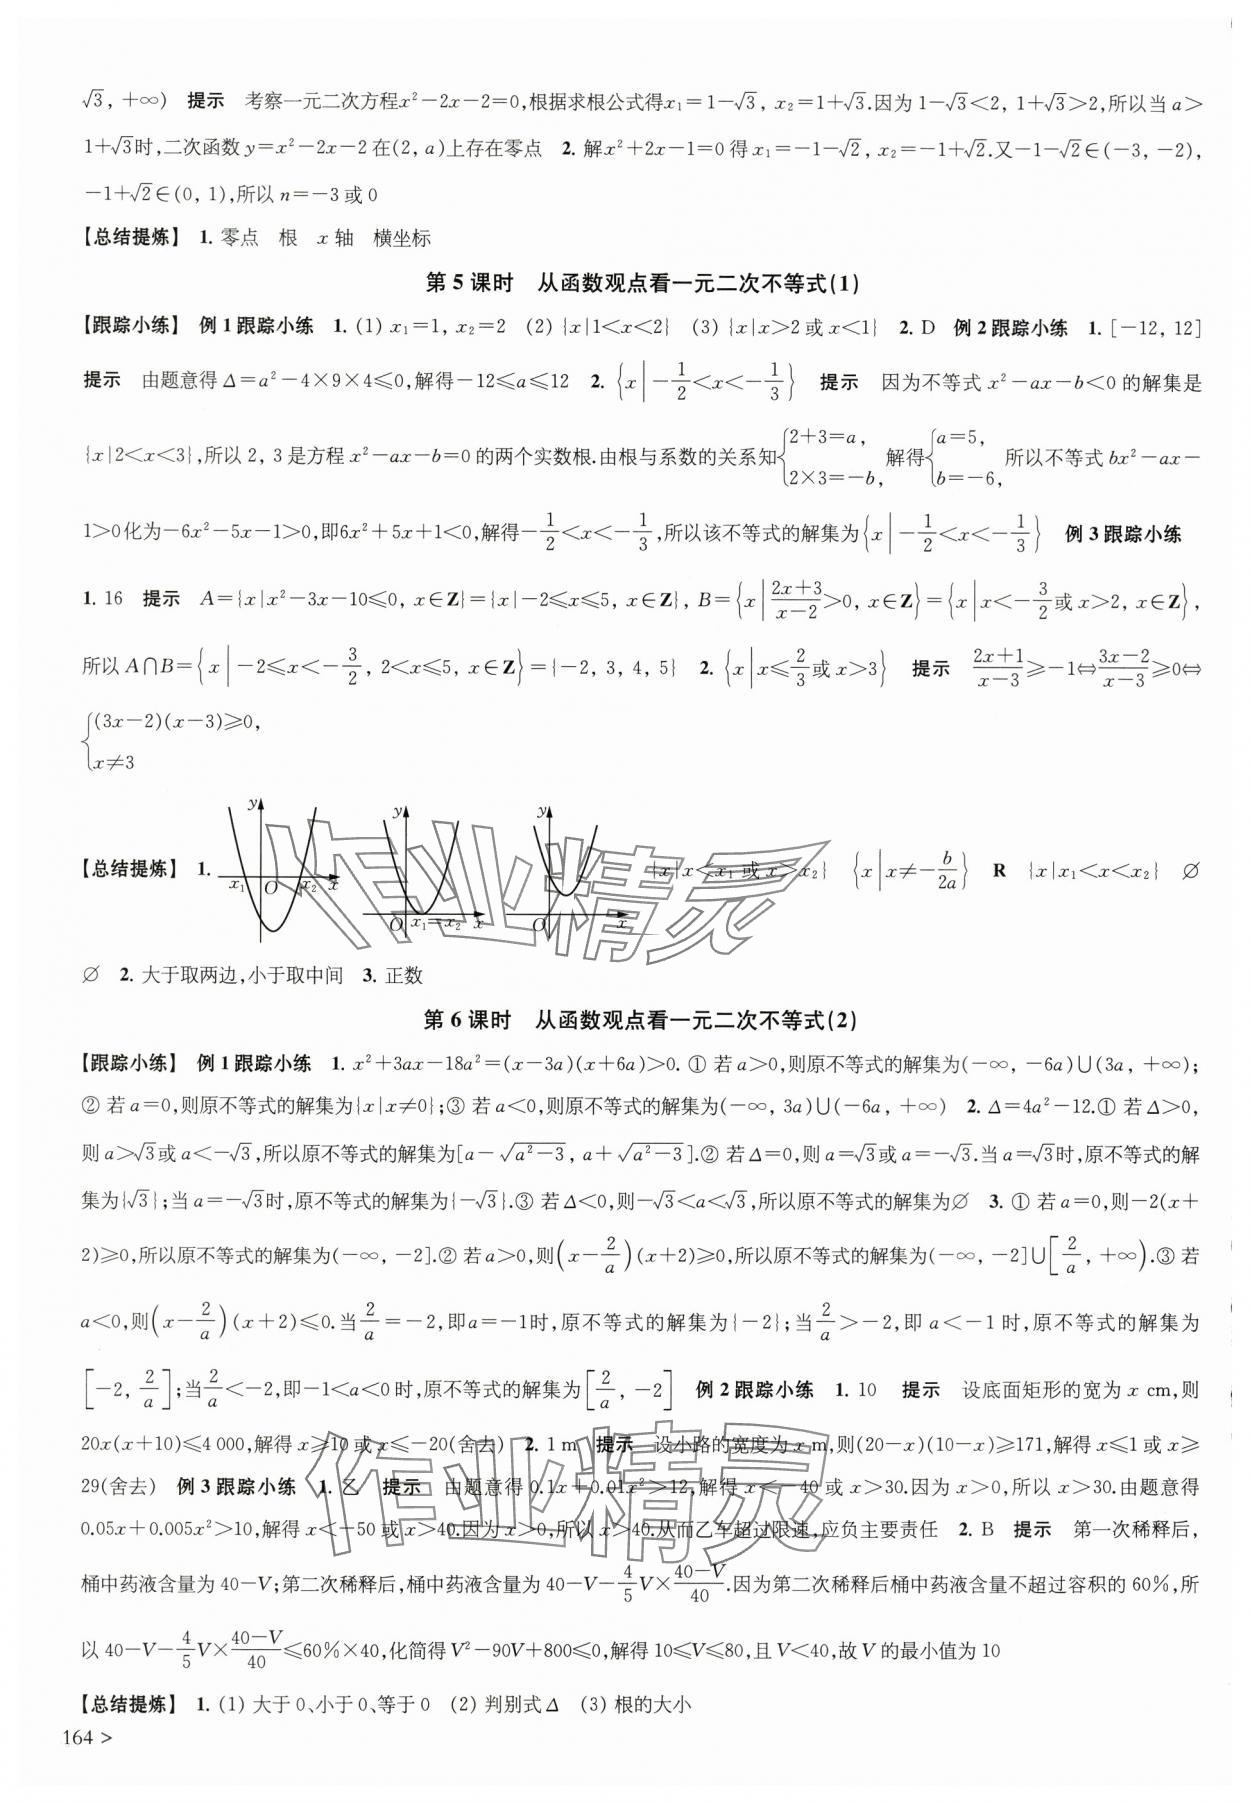 √3, +∞)　提示　考察一元二次方程x²-2x-2=0,根据求根公式得x₁=1-√3, x₂=1+√3.因为1-√3<2, 1+√3>2,所以当a>
1+√3时,二次函数y=x²-2x-2在(2, a)上存在零点　2. 解x²+2x-1=0得x₁=-1-√2, x₂=-1+√2.又-1-√2∈(-3, -2),
-1+√2∈(0, 1),所以n=-3或0
【总结提炼】 1. 零点　根　x轴　横坐标
第5课时　从函数观点看一元二次不等式(1)
【跟踪小练】 例1跟踪小练　1. (1) x₁=1, x₂=2　(2) {x|1<x<2}　(3) {x|x>2或x<1}　2. D　例2跟踪小练　1. [-12, 12]
提示　由题意得Δ=a²-4×9×4≤0,解得-12≤a≤12　2. {x|-1/2<x<-1/3}　提示　因为不等式x²-ax-b<0的解集是
{x|2<x<3},所以2, 3是方程x²-ax-b=0的两个实数根.由根与系数的关系知{2+3=a, 2×3=-b, 解得{a=5, b=-6, 所以不等式bx²-ax-
1>0化为-6x²-5x-1>0,即6x²+5x+1<0,解得-1/2<x<-1/3,所以该不等式的解集为{x|-1/2<x<-1/3}　例3跟踪小练
1. 16　提示　A={x|x²-3x-10≤0, x∈Z}={x|-2≤x≤5, x∈Z}, B={x|(2x+3)/(x-2)>0, x∈Z}={x|x<-3/2或x>2, x∈Z},
所以A∩B={x|-2≤x<-3/2, 2<x≤5, x∈Z}={-2, 3, 4, 5}　2. {x|x≤2/3或x>3}　提示　(2x+1)/(x-3)≥-1⇔(3x-2)/(x-3)≥0⇔
{(3x-2)(x-3)≥0,
x≠3
【总结提炼】 1. y x₁ O x₂ x　y O x₁=x₂ x　y O x　{x|x<x₁或x>x₂}　{x|x≠-b/2a}　R　{x|x₁<x<x₂}　∅
∅　2. 大于取两边,小于取中间　3. 正数
第6课时　从函数观点看一元二次不等式(2)
【跟踪小练】 例1跟踪小练　1. x²+3ax-18a²=(x-3a)(x+6a)>0. ① 若a>0,则原不等式的解集为(-∞, -6a)∪(3a, +∞);
② 若a=0,则原不等式的解集为{x|x≠0};③ 若a<0,则原不等式的解集为(-∞, 3a)∪(-6a, +∞)　2. Δ=4a²-12.① 若Δ>0,
则a>√3或a<-√3,所以原不等式的解集为[a-√(a²-3), a+√(a²-3)].② 若Δ=0,则a=√3或a=-√3.当a=√3时,原不等式的解
集为{√3};当a=-√3时,原不等式的解集为{-√3}.③ 若Δ<0,则-√3<a<√3,所以原不等式的解集为∅　3. ① 若a=0,则-2(x+
2)≥0,所以原不等式的解集为(-∞, -2].② 若a>0,则(x-2/a)(x+2)≥0,所以原不等式的解集为(-∞, -2]∪[2/a, +∞).③ 若
a<0,则(x-2/a)(x+2)≤0.当2/a=-2,即a=-1时,原不等式的解集为{-2};当2/a>-2,即a<-1时,原不等式的解集为
[-2, 2/a];当2/a<-2,即-1<a<0时,原不等式的解集为[2/a, -2]　例2跟踪小练　1. 10　提示　设底面矩形的宽为x cm,则
20x(x+10)≤4 000,解得x≥10或x≤-20(舍去)　2. 1 m　提示　设小路的宽度为x m,则(20-x)(10-x)≥171,解得x≤1或x≥
29(舍去)　例3跟踪小练　1. 乙　提示　由题意得0.1x+0.01x²>12,解得x<-40或x>30.因为x>0,所以x>30.由题意得
0.05x+0.005x²>10,解得x<-50或x>40.因为x>0,所以x>40.从而乙车超过限速,应负主要责任　2. B　提示　第一次稀释后,
桶中药液含量为40-V;第二次稀释后,桶中药液含量为40-V-4/5V×(40-V)/40.因为第二次稀释后桶中药液含量不超过容积的60%,所
以40-V-4/5V×(40-V)/40≤60%×40,化简得V²-90V+800≤0,解得10≤V≤80,且V<40,故V的最小值为10
【总结提炼】 1. (1) 大于0、小于0、等于0　(2) 判别式Δ　(3) 根的大小
164 >
作业精灵
作业精灵